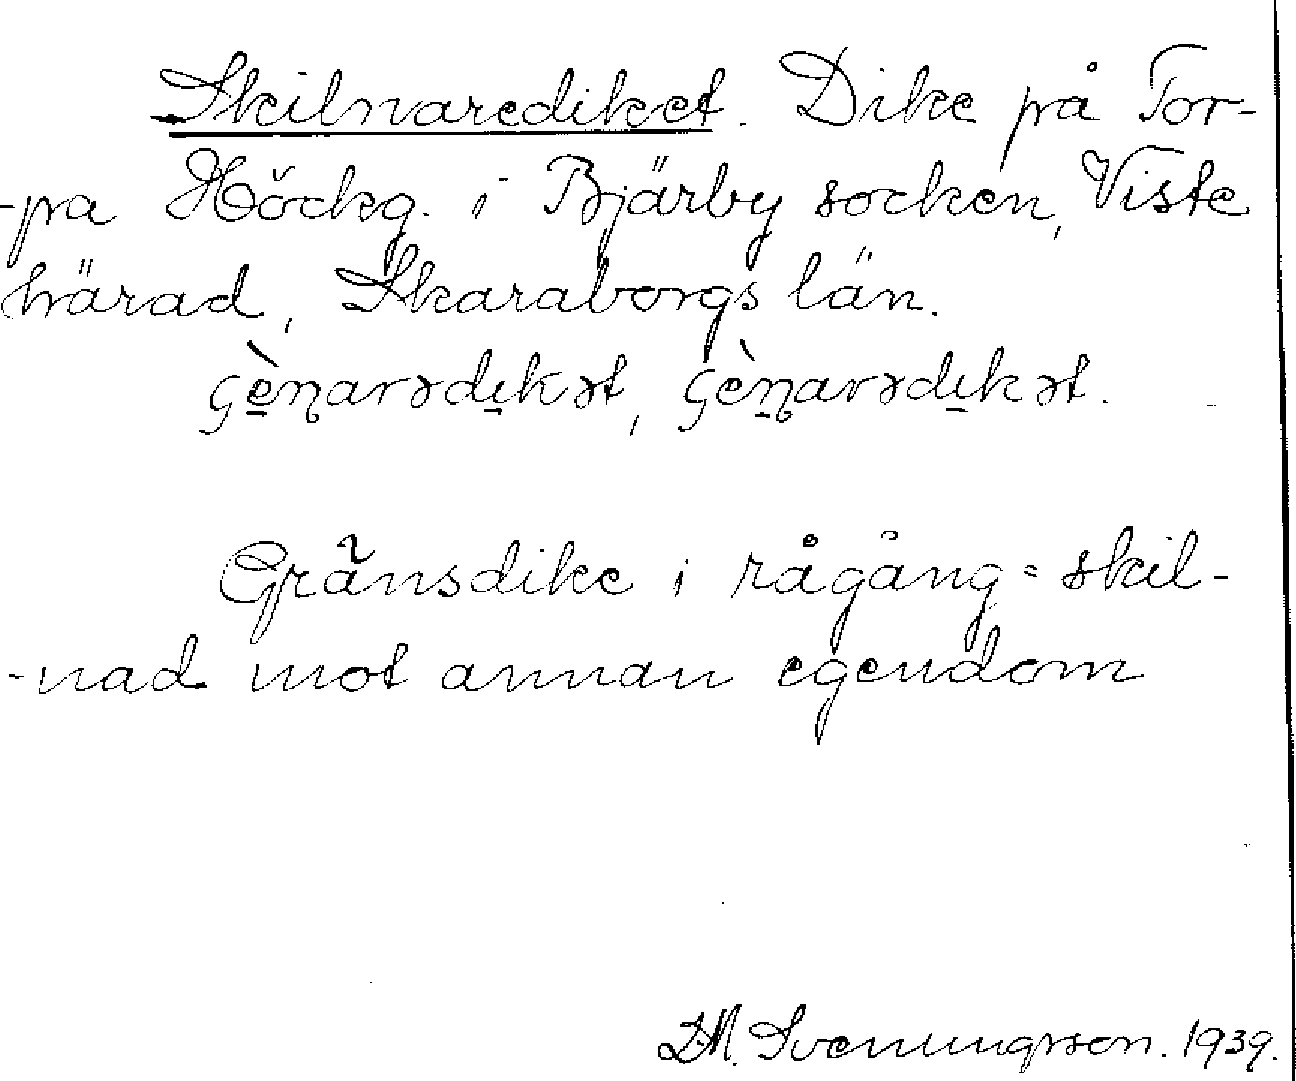 Skilnarediket. Dike på Tor-
-pa Höckg. i Bjärby socken, Viste
härad, Skaraborgs län.
Gränsdike i rågång = skil-
-nad mot annan egendom
D.M. Svenungsson. 1939.